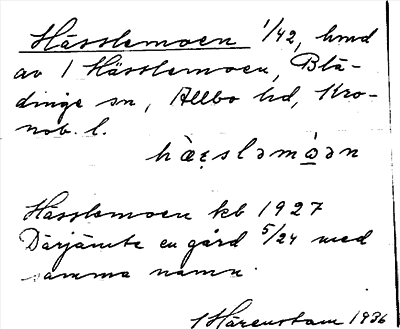 Hässlemoen 1/42, hmd
av 1 Hässlemoen, Blä-
dinge sn, Allbo hd, Kro-
nob. l.
Hässlemoen kb 1927
Därjämte en gård 5/24 med
samma namn.
Härenstam 1936